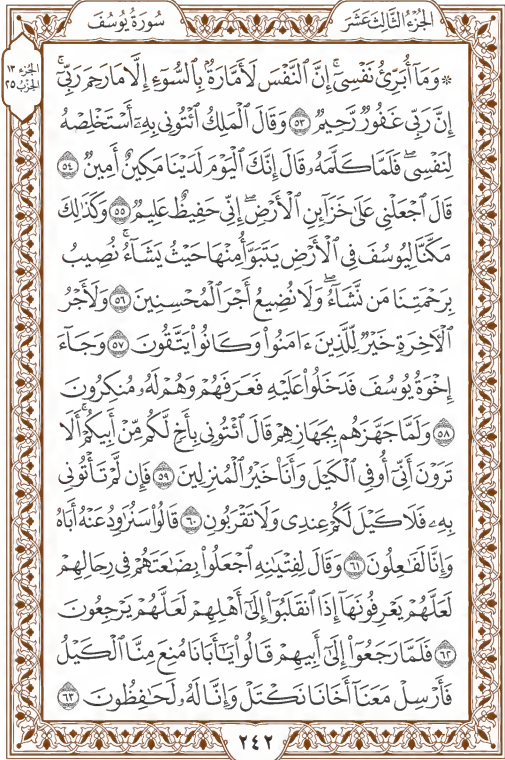 الجزء الثالث عشر
سورة يوسف
الجزء ١٣
الحزب ٢٥
۞ وَمَآ أُبَرِّئُ نَفْسِيٓۚ إِنَّ ٱلنَّفْسَ لَأَمَّارَةُۢ بِٱلسُّوٓءِ إِلَّا مَا رَحِمَ رَبِّيٓۚ
إِنَّ رَبِّي غَفُورٞ رَّحِيمٞ ٥٣ وَقَالَ ٱلْمَلِكُ ٱئْتُونِي بِهِۦٓ أَسْتَخْلِصْهُ
لِنَفْسِيۖ فَلَمَّا كَلَّمَهُۥ قَالَ إِنَّكَ ٱلْيَوْمَ لَدَيْنَا مَكِينٌ أَمِينٞ ٥٤
قَالَ ٱجْعَلْنِي عَلَىٰ خَزَآئِنِ ٱلْأَرْضِۖ إِنِّي حَفِيظٌ عَلِيمٞ ٥٥ وَكَذَٰلِكَ
مَكَّنَّا لِيُوسُفَ فِي ٱلْأَرْضِ يَتَبَوَّأُ مِنْهَا حَيْثُ يَشَآءُۚ نُصِيبُ
بِرَحْمَتِنَا مَن نَّشَآءُۖ وَلَا نُضِيعُ أَجْرَ ٱلْمُحْسِنِينَ ٥٦ وَلَأَجْرُ
ٱلْأٓخِرَةِ خَيْرٞ لِّلَّذِينَ ءَامَنُوا۟ وَكَانُوا۟ يَتَّقُونَ ٥٧ وَجَآءَ
إِخْوَةُ يُوسُفَ فَدَخَلُوا۟ عَلَيْهِ فَعَرَفَهُمْ وَهُمْ لَهُۥ مُنكِرُونَ
٥٨ وَلَمَّا جَهَّزَهُم بِجَهَازِهِمْ قَالَ ٱئْتُونِي بِأَخٖ لَّكُم مِّنْ أَبِيكُمْۚ أَلَا
تَرَوْنَ أَنِّيٓ أُوفِي ٱلْكَيْلَ وَأَنَا۠ خَيْرُ ٱلْمُنزِلِينَ ٥٩ فَإِن لَّمْ تَأْتُونِي
بِهِۦ فَلَا كَيْلَ لَكُمْ عِندِي وَلَا تَقْرَبُونِ ٦٠ قَالُوا۟ سَنُرَٰوِدُ عَنْهُ أَبَاهُ
وَإِنَّا لَفَٰعِلُونَ ٦١ وَقَالَ لِفِتْيَٰنِهِ ٱجْعَلُوا۟ بِضَٰعَتَهُمْ فِي رِحَالِهِمْ
لَعَلَّهُمْ يَعْرِفُونَهَآ إِذَا ٱنقَلَبُوٓا۟ إِلَىٰٓ أَهْلِهِمْ لَعَلَّهُمْ يَرْجِعُونَ
٦٢ فَلَمَّا رَجَعُوٓا۟ إِلَىٰٓ أَبِيهِمْ قَالُوا۟ يَٰٓأَبَانَا مُنِعَ مِنَّا ٱلْكَيْلُ
فَأَرْسِلْ مَعَنَآ أَخَانَا نَكْتَلْ وَإِنَّا لَهُۥ لَحَٰفِظُونَ ٦٣
٢٤٢